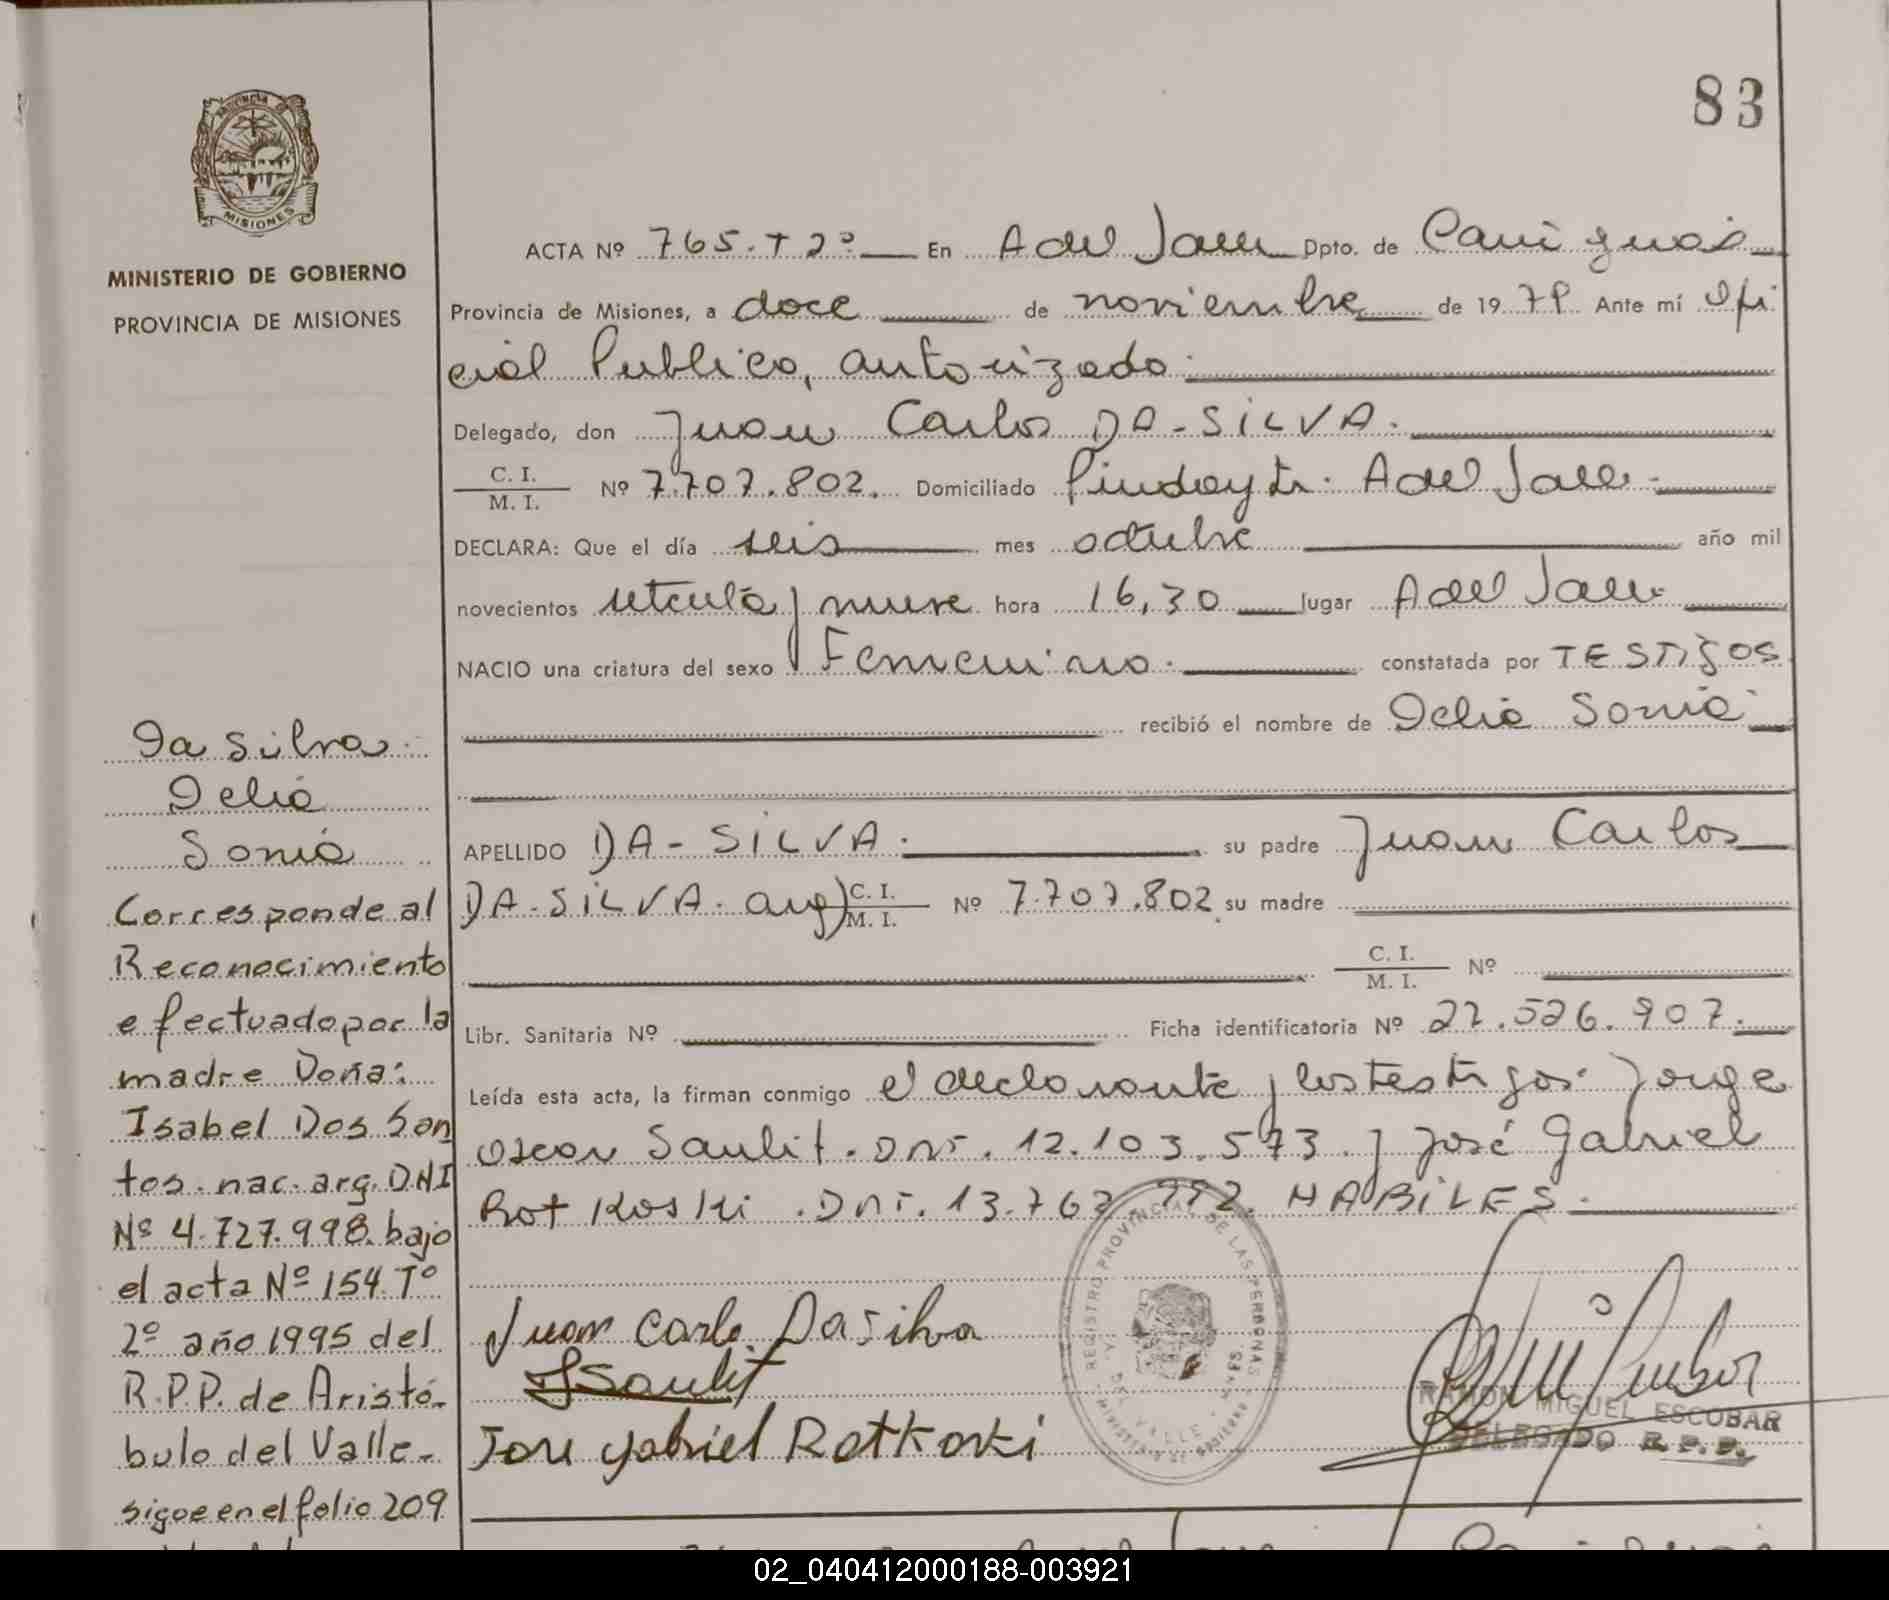 83
PROVINCIA DE
MISIONES
MINISTERIO DE GOBIERNO
PROVINCIA DE MISIONES
ACTA Nº 765. T 2º En A del Valle Dpto. de Cainguás
Provincia de Misiones, a doce de noviembre de 1979. Ante mí Ofi
cial Publico, autorizado
Delegado, don Juan Carlos DA-SILVA.
C. I.
M. I. Nº 7.707.802. Domiciliado Pindayti. A del Valle.
DECLARA: Que el día seis mes octubre año mil
novecientos setenta y nueve hora 16,30 lugar A del Valle.
NACIO una criatura del sexo Femenino. constatada por TESTIGOS
recibió el nombre de Delia Sonia
APELLIDO DA-SILVA. su padre Juan Carlos
DA-SILVA. arg) C. I.
M. I. Nº 7.707.802. su madre
C. I.
M. I. Nº
Libr. Sanitaria Nº Ficha identificatoria Nº 27.526.907.
Leída esta acta, la firman conmigo el declarante y los testigos. Jorge
Oscar Saulit. DNI. 12.103.573. y José Gabriel
Rotkoski. DNI. 13.762.992. HABILES.
Da Silva.
Delia
Sonia
Corresponde al
Reconocimiento
efectuado por la
madre Doña:
Isabel Dos San
tos. nac. arg. DNI
Nº 4.727.998. bajo
el acta Nº 154. Tº
2º año 1995 del
R.P.P. de Aristó-
bulo del Valle.
sigue en el folio 209
Juan Carlo Dasilva
JSaulit
Jose Gabriel Rotkoski
REGISTRO PROVINCIAL DE LAS PERSONAS
DEL VALLE
RAMON MIGUEL ESCOBAR
DELEGADO R.P.P.
02_040412000188-003921